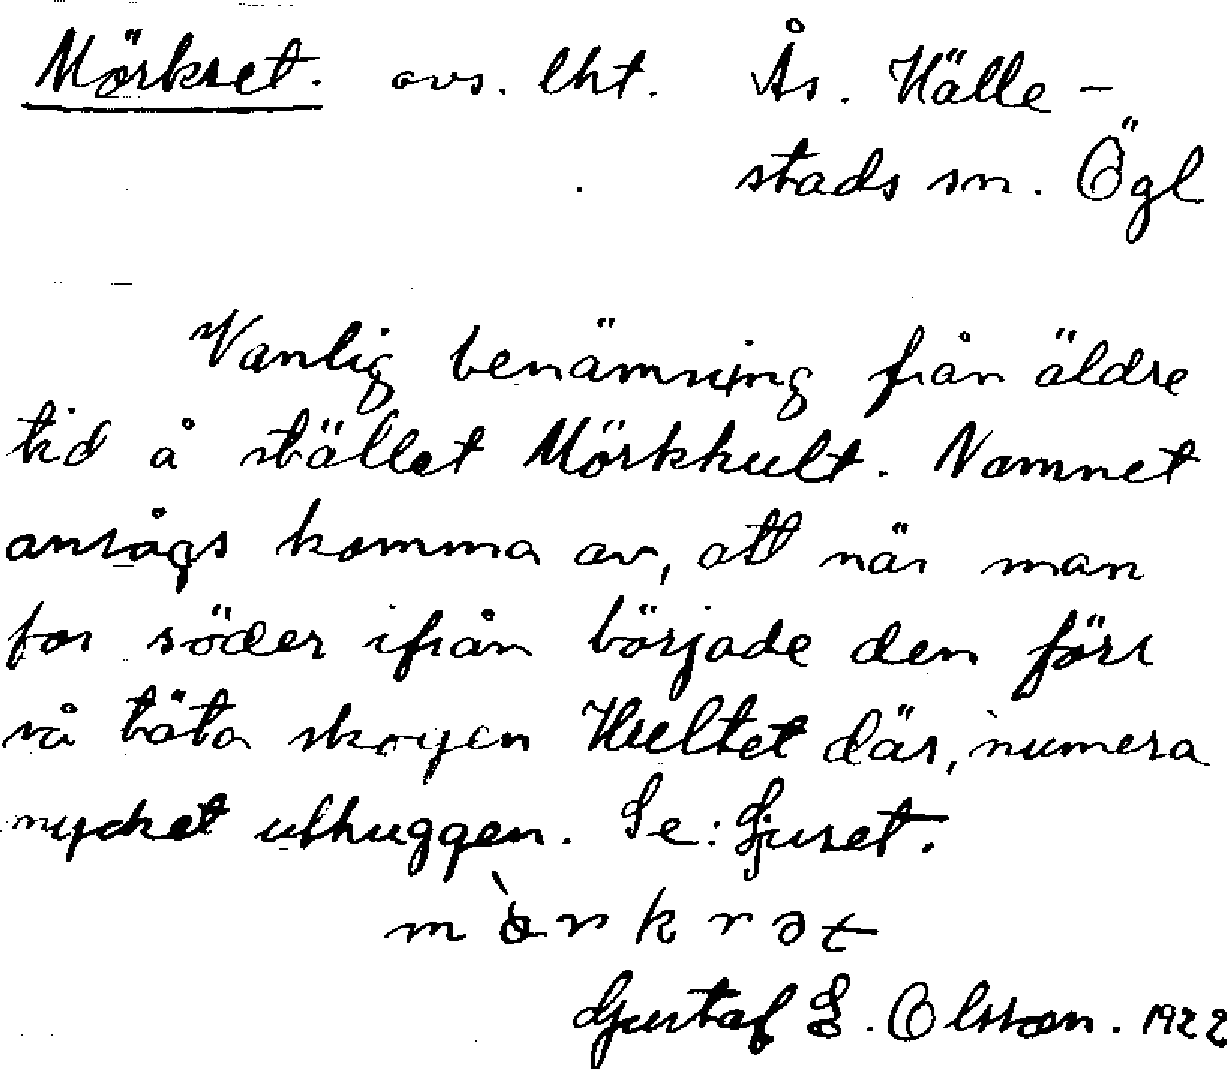 Mörkret. avs. lht. Ås. Hälle-
stads sn. Ögl
Vanlig benämning från äldre
tid å stället Mörkhult. Namnet
ansågs komma av, att när man
for söder ifrån började den förr
så täta skogen Hultet där, numera
mycket uthuggen. Se: Ljuset.
m ò r k r ə t
Gustaf L. Olsson. 1922